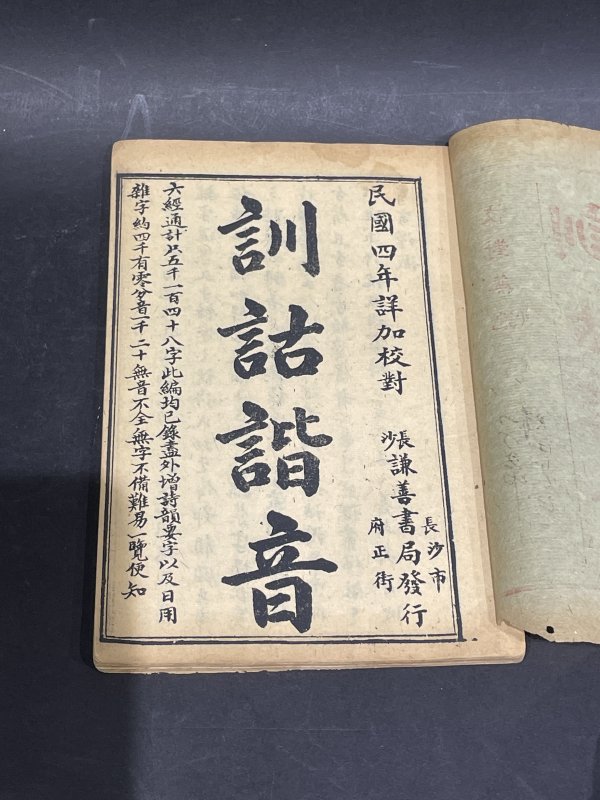 民國四年詳加校對
長沙謙善書局發行
長沙市
府正街
訓詁諧音
六經通計只五千一百四十八字此編均已錄盡外增詩韻要字以及日用
雜字約四千有零分音一千二十無音不全無字不備難易一覽便知